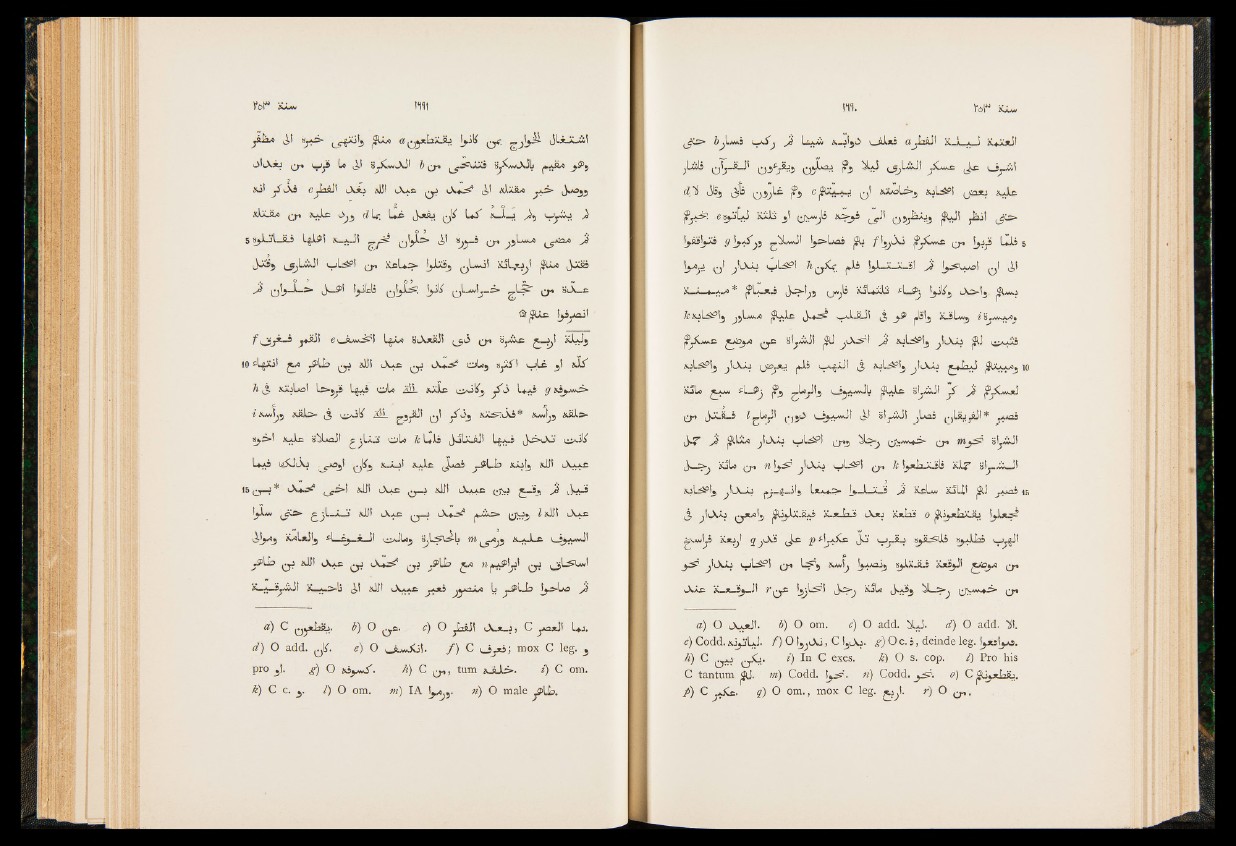 سنة ٢٥٣ ١٦٩٠
العتمة ليلة الفطر a فعلف دوابّه شيئا ثم ركب فسار b حتى
اشرف على عسكر الشارى ليلا وهم يصلّون ويقرءون القرآن فاشار
عليه بعض اصحابه وخاصّته ان يبيّتهم c وهم غارّون فأبى وقال لا d
حتى انظر اليهم وينظرون الىّ فوجّه فارسين او ثلثة ليأتوه e بخبرهم
5 فلمّا قربوا من عسكرهم نذروا f بهم فصاحوا السلاح وركبوا g فتواقفوا
الى ان اصبحوا ثم اقتتلوا فلم يمكن h اصحاب بندار ان يرموا
بسهم واحد وكانوا زهاء ثلثمائة فارس وراجل فعبّاهم *ميمنة
وميسرة i وساقة واقام هو في القلب فحمل عليهم مساور واصحابه k
فثبت لهم بندار واصحابه ثم انحدر لهم الشراة عن موضع عسكرهم
10 ومبيتهم ليطمع بندار واصحابه في النهب فلم يعرض بندار واصحابه
لعسكرهم ثم كرّ الشراة عليهم بالسيوف والرماح وهم زهاء سبع مائة
فصبر *الفريقان فصار الشراة الى السيوف دون الرماح l فقتل من
الشراة نحو m من خمسين رجلا ومن اصحاب بندار مثلهم ثم حمل
الشراة حملة فاقتطعوا k من اصحاب بندار نحوا n من مائة رجل
15 فصبر لهم المائة ساعة ثم قتلوا جميعا وانهزم بندار واصحابه
فجعلوا يقتطعونهم o قطعة بعد قطعة فيقتلونهم وامعن بندار في
الهرب فطلبوه فلحقوه بقرب تلّ عكبراء p على قدر q اربعة فراسخ
من موضع الوقعة فقتلوه ونصبوا رأسه ونجا من اصحاب بندار نحو
من خمسين رجلا وقيل مائة رجل انحازوا عن r الوقعة عند
a) O العيد. b) O om. c) O add. ليلا. d) O add. الا.
e) Codd. ليأتونه. f) O نذروا, C نذبوا. g) O c. ف, deinde leg. فتواقعوا.
h) C يكن بين. i) In C exes. k) O s. cop. l) Pro his
C tantum لهم. m) Codd. نحوا. n) Codd. نحو. o) C يقطعونهم.
p) C عكبر. q) O om., mox C leg. اربع. r) O من.
سنة ٢٥٣ ١٦٩١
اشتغال الخوارج بمن كانوا يقتطعون a منهم وانتهى خبره الى مظفّر
وهو مقيم بالدسكرة فتنحّى من b الدسكرة الى ما قرب من بغداد
ووصل خبر مقتله الى محمّد بن عبد الله بغد الفطر c فذُكر انه
لم يشرب ولم يَلْهُ كما كان يفعل غمّا بما d ورد عليه من مقتله
5 ثم مضى مساور من فوره الى حلوان فخرج اليه اهلها فقاتلوه
فقتل منهم اربعمائة انسان وقتلوا جماعة من اصحاب الشارى وقتل
عدّة من حجّاج خراسان كانوا بحلوان فاعانوا اهل حلوان ثم
انصرفوا عنهم
وليلة اربع عشرة من ذى القعدة منها انخسف e القمر فغرق f
10 كلّه او غاب اكثره ومات محمد بن عبد الله بن طاهر مع انتهاء
خسوفه g فيما ذكر وكانت علّته الّتى مات فيها قروحا اصابته في h
حلقه ورأسه *فذبحته وذكر ان القروح الّتى كانت في حلقه ورأسه i
كانت تدخل فيها الفتائل فلمّا k مات تنازع الصلاة عليه اخوه
عبيد الله وابنه طاهر فصلّى عليه ابنه وكان اوصى بذلك فيما
15 قيل ثم وقع بين عبيد الله بن عبد الله اخى محمد *بن
عبد الله l وبين حشم محمّد بن عبد الله تنازع حتى سلّوا
السيوف عليه ورُمى m بالحجارة ومالت الغوغاء والعامّة وموالى
اسحاق بن ابراهيم n مع طاهر بن محمد بن عبد الله بن طاهر
ثم صاحوا طاهر يا منصور فعبر عبيد الله الى ناحية الشرقيّة
a) C يقطعون. b) O عن. c) O بعيد الفطر, C بما العصر.
d) O add. كان. e) O انكسف. f) C فعرف; mox C leg. و
pro او. g) O كسوفه. h) C من, tum خلفه. i) C om.
k) C c. و. l) O om. m) IA ورموا. n) O male طاهر.